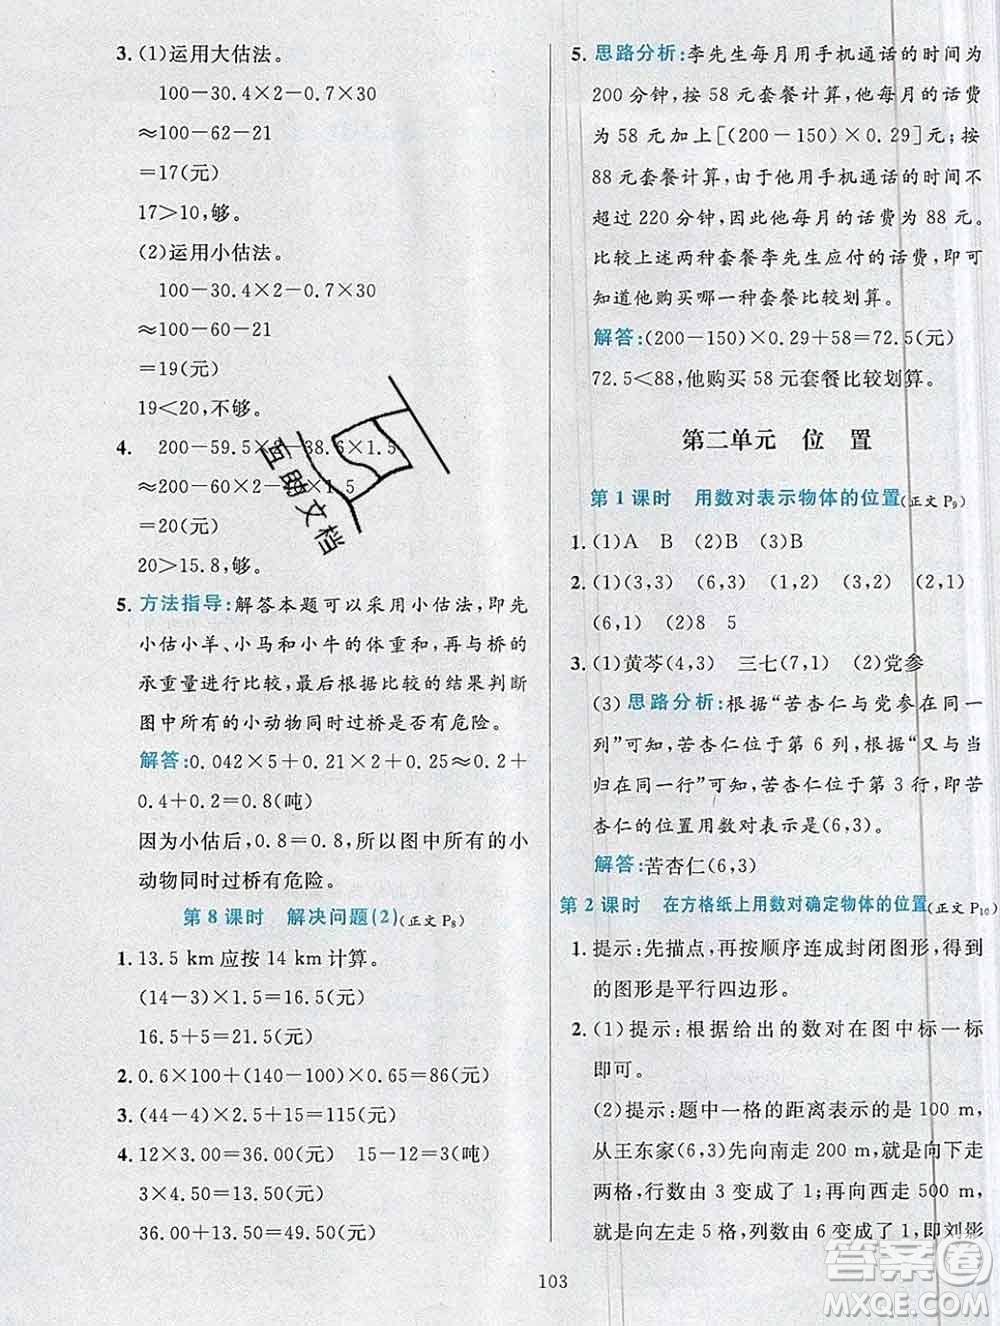 3. (1)运用大估法。
100－30.4×2－0.7×30
≈100－62－21
＝17(元)
17＞10,够。
(2)运用小估法。
100－30.4×2－0.7×30
≈100－60－21
＝19(元)
19＜20,不够。
4. 200－59.5×2－38.6×1.5
≈200－60×2－40×1.5
＝20(元)
20＞15.8,够。
5. 方法指导:解答本题可以采用小估法,即先
小估小羊、小马和小牛的体重和,再与桥的
承重量进行比较,最后根据比较的结果判断
图中所有的小动物同时过桥是否有危险。
解答:0.042×5＋0.21×2＋0.425≈0.2＋
0.4＋0.2＝0.8(吨)
因为小估后,0.8＝0.8,所以图中所有的小
动物同时过桥有危险。
第 8 课时 解决问题(2)(正文 P8)
1. 13.5 km应按 14 km 计算。
(14－3)×1.5＝16.5(元)
16.5＋5＝21.5(元)
2. 0.6×100＋(140－100)×0.65＝86(元)
3. (44－4)×2.5＋15＝115(元)
4. 12×3.00＝36.00(元) 15－12＝3(吨)
3×4.50＝13.50(元)
36.00＋13.50＝49.50(元)
5. 思路分析:李先生每月用手机通话的时间为
200 分钟,按 58 元套餐计算,他每月的话费
为 58 元加上[(200－150)×0.29]元;按
88 元套餐计算,由于他用手机通话的时间不
超过 220 分钟,因此他每月的话费为 88 元。
比较上述两种套餐李先生应付的话费,即可
知道他购买哪一种套餐比较划算。
解答:(200－150)×0.29＋58＝72.5(元)
72.5＜88,他购买 58 元套餐比较划算。
第二单元 位 置
第 1 课时 用数对表示物体的位置(正文 P9)
1. (1)A B (2)B (3)B
2. (1)(3,3) (6,3) (1,2) (3,1) (2,1)
(6,1) (2)8 5
3. (1)黄芩(4,3) 三七(7,1) (2)党参
(3)思路分析:根据“苦杏仁与党参在同一
列”可知,苦杏仁位于第 6 列,根据“又与当
归在同一行”可知,苦杏仁位于第 3 行,即苦
杏仁的位置用数对表示是(6,3)。
解答:苦杏仁(6,3)
第 2 课时 在方格纸上用数对确定物体的位置(正文 P10)
1. 提示:先描点,再按顺序连成封闭图形,得到
的图形是平行四边形。
2. (1)提示:根据给出的数对在图中标一标
即可。
(2)提示:题中一格的距离表示的是 100 m,
从王东家(6,3)先向南走 200 m,就是向下走
两格,行数由 3 变成了 1;再向西走 500 m,
就是向左走 5 格,列数由 6 变成了 1,即刘影
103
互助文档
答案圈
MXQE.COM